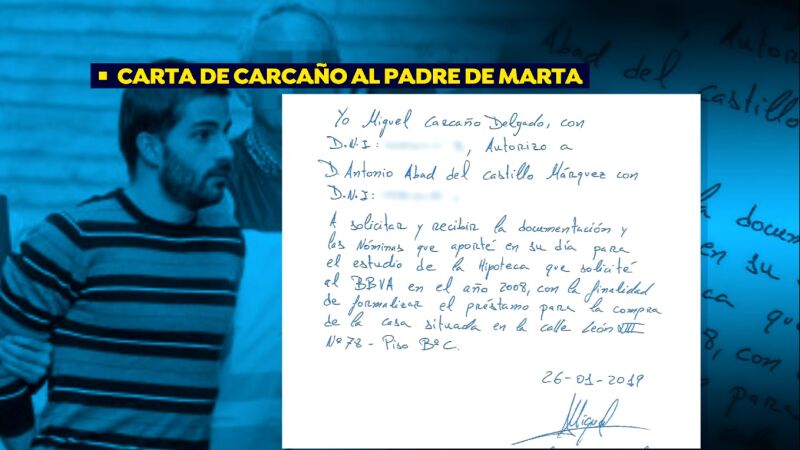 CARTA DE CARCAÑO AL PADRE DE MARTA
Yo Miguel Carcaño Delgado, con
D.N.I: , Autorizo a
D Antonio Abad del Castillo Márquez con
D.N.I:
A solicitar y recibir la documentación y
las Nóminas que aporté en su día para
el estudio de la Hipoteca que solicité
al BBVA en el año 2008, con la finalidad
de formalizar el préstamo para la compra
de la casa situada en la calle León XIII
Nº78 - Piso BºC.
26-01-2019
Miguel
Autori
Abad del
Castillo
documen
en su
que
8, con
para